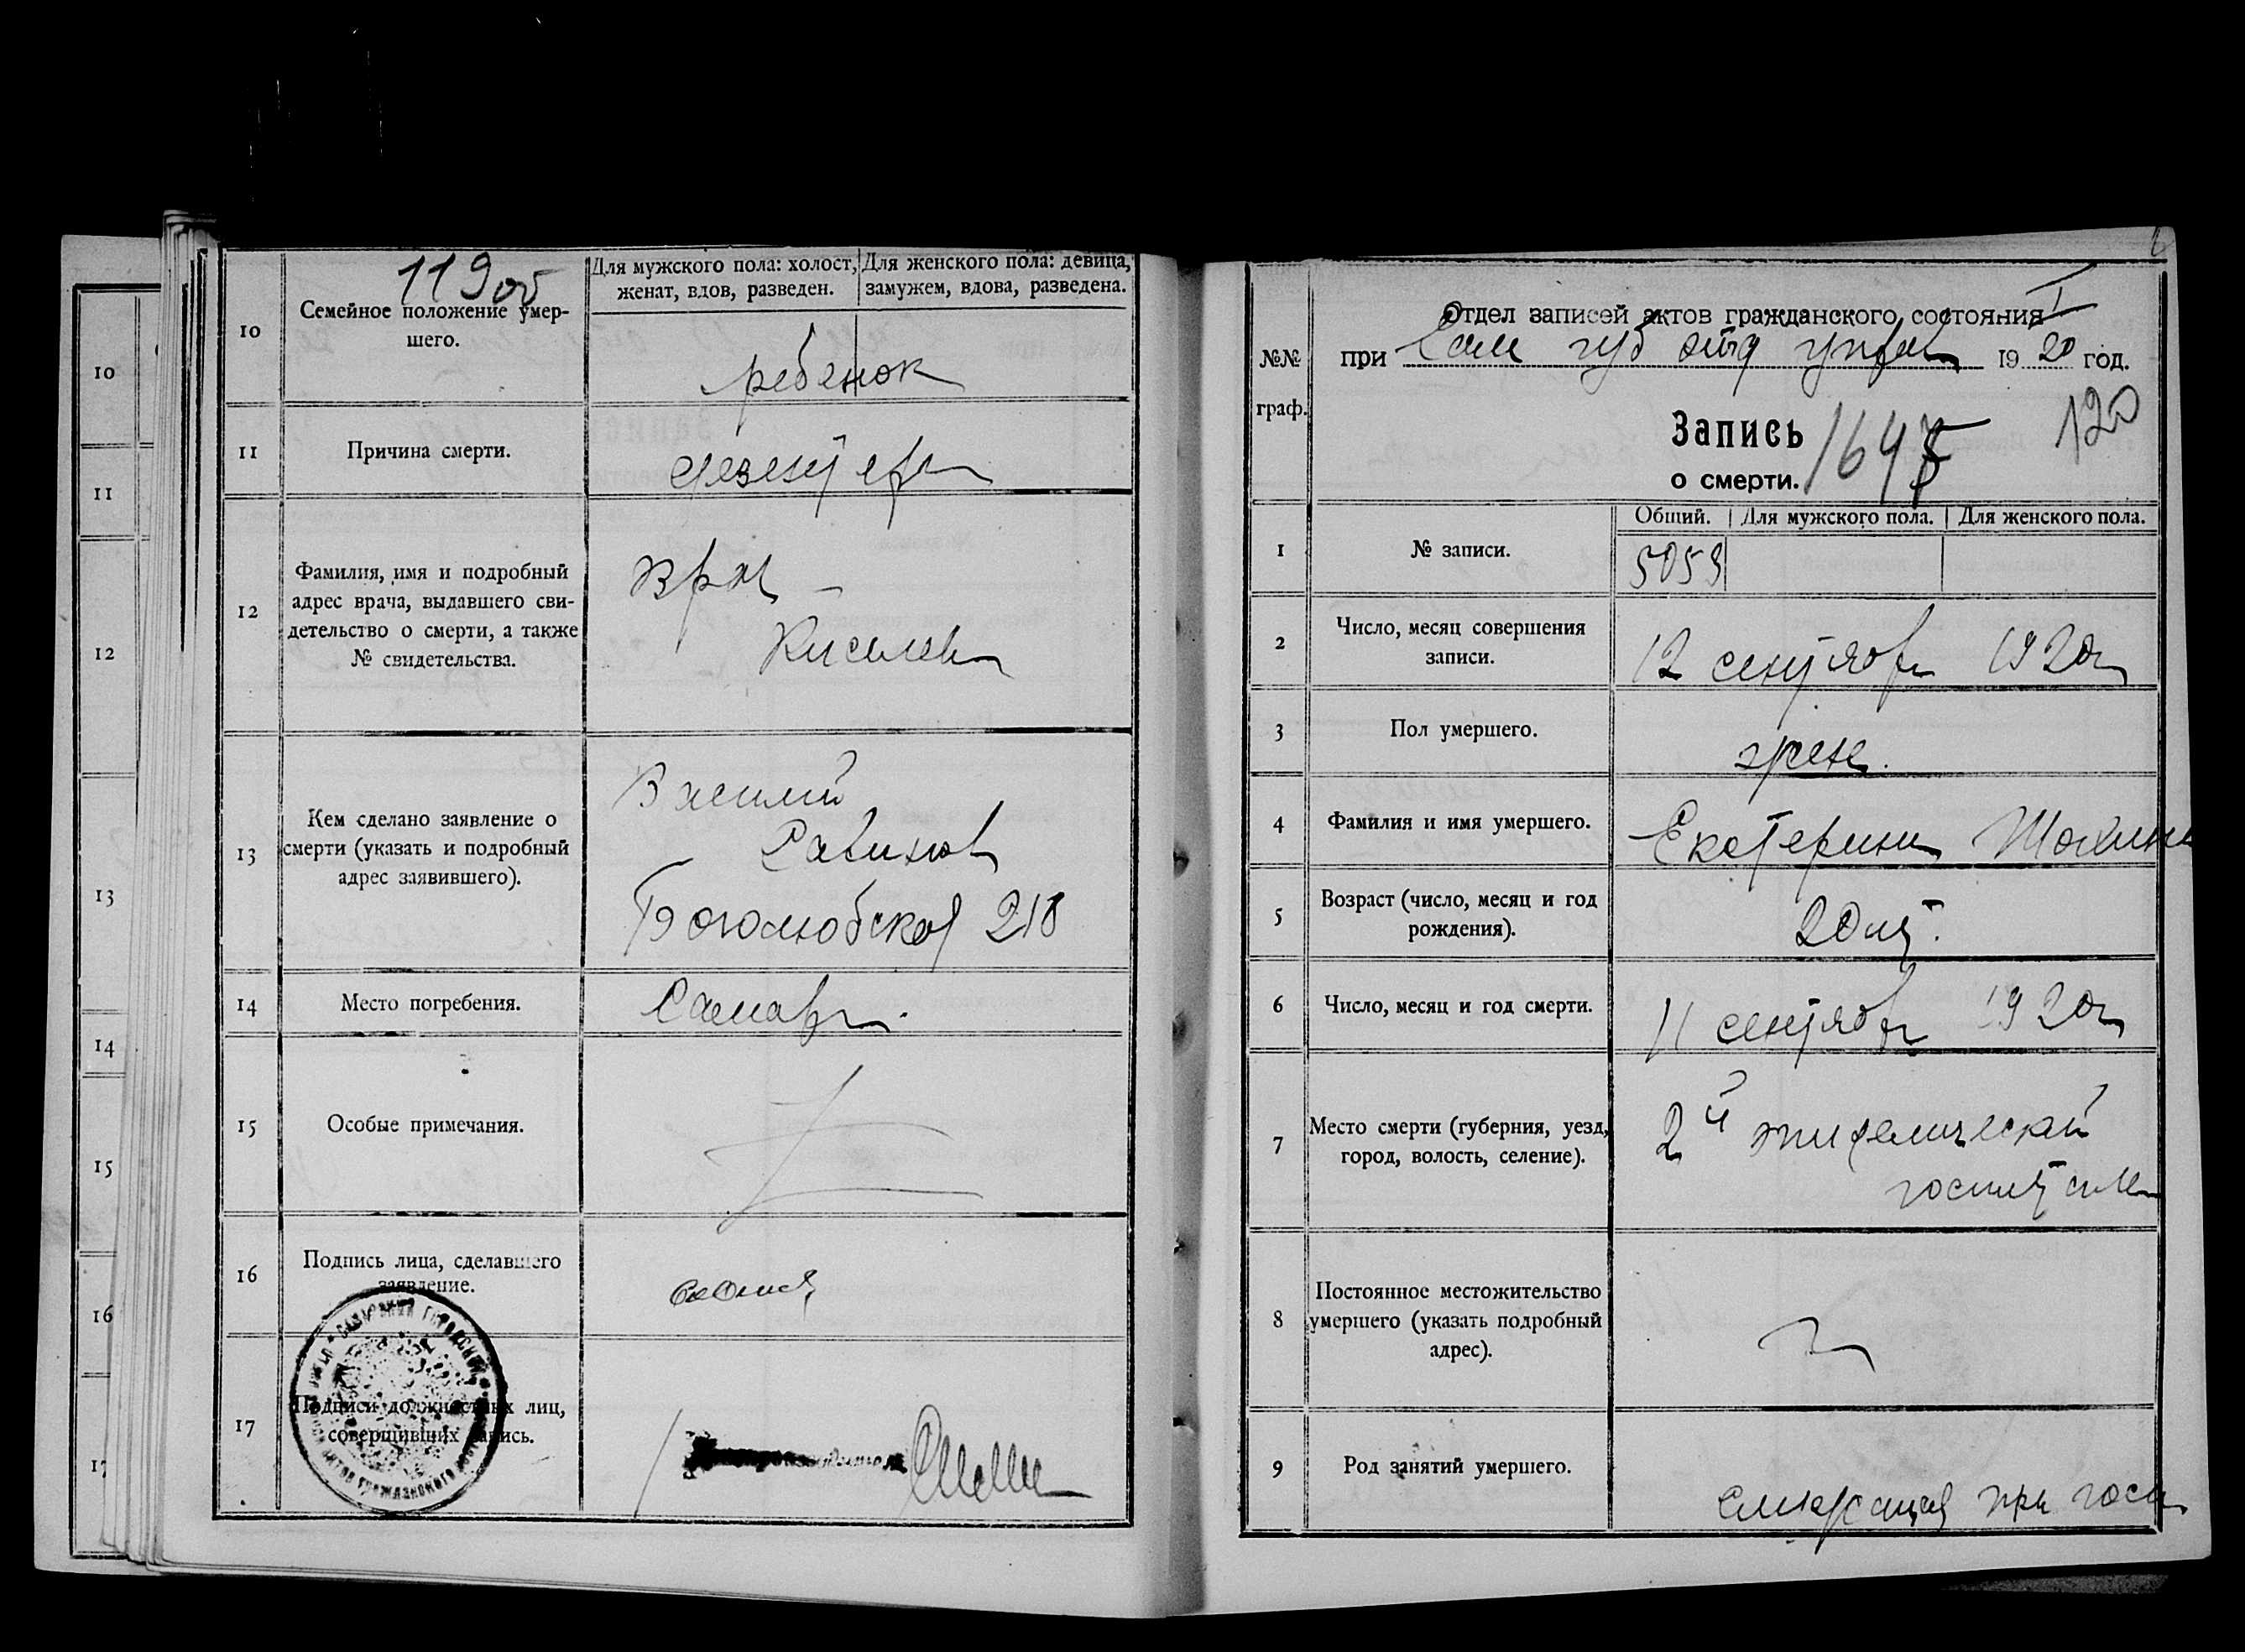 10
11
12
13
14
15
16
17
119 об
10
Семейное положение умер-
шего.
Для мужского пола: холост,
женат, вдов, разведен.
Для женского пола: девица,
замужем, вдова, разведена.
ребенок
11
Причина смерти.
дезентерия
12
Фамилия, имя и подробный
адрес врача, выдавшего сви-
детельство о смерти, а также
№ свидетельства.
Врач –
Киселев
13
Кем сделано заявление о
смерти (указать и подробный
адрес заявившего).
Василий
Савинов
Боголюбская 218
14
Место погребения.
Самара.
15
Особые примечания.
16
Подпись лица, сделавшего
заявление.
17
Подписи должностных лиц,
совершивших запись.
№№
граф.
Отдел записей актов гражданского состояния
при Сам губ отд управ 1920 год.
I
Запись
о смерти.
120
1
№ записи.
Общий.
Для мужского пола.
Для женского пола.
5053
2
Число, месяц совершения
записи.
12 сентября 1920 г
3
Пол умершего.
жен.
4
Фамилия и имя умершего.
Екатерина
5
Возраст (число, месяц и год
рождения).
20 лет.
6
Число, месяц и год смерти.
11 сентября 1920 г
7
Место смерти (губерния, уезд,
город, волость, селение).
2й эпидемический
госпиталь
8
Постоянное местожительство
умершего (указать подробный
адрес).
9
Род занятий умершего.
служащая при госп